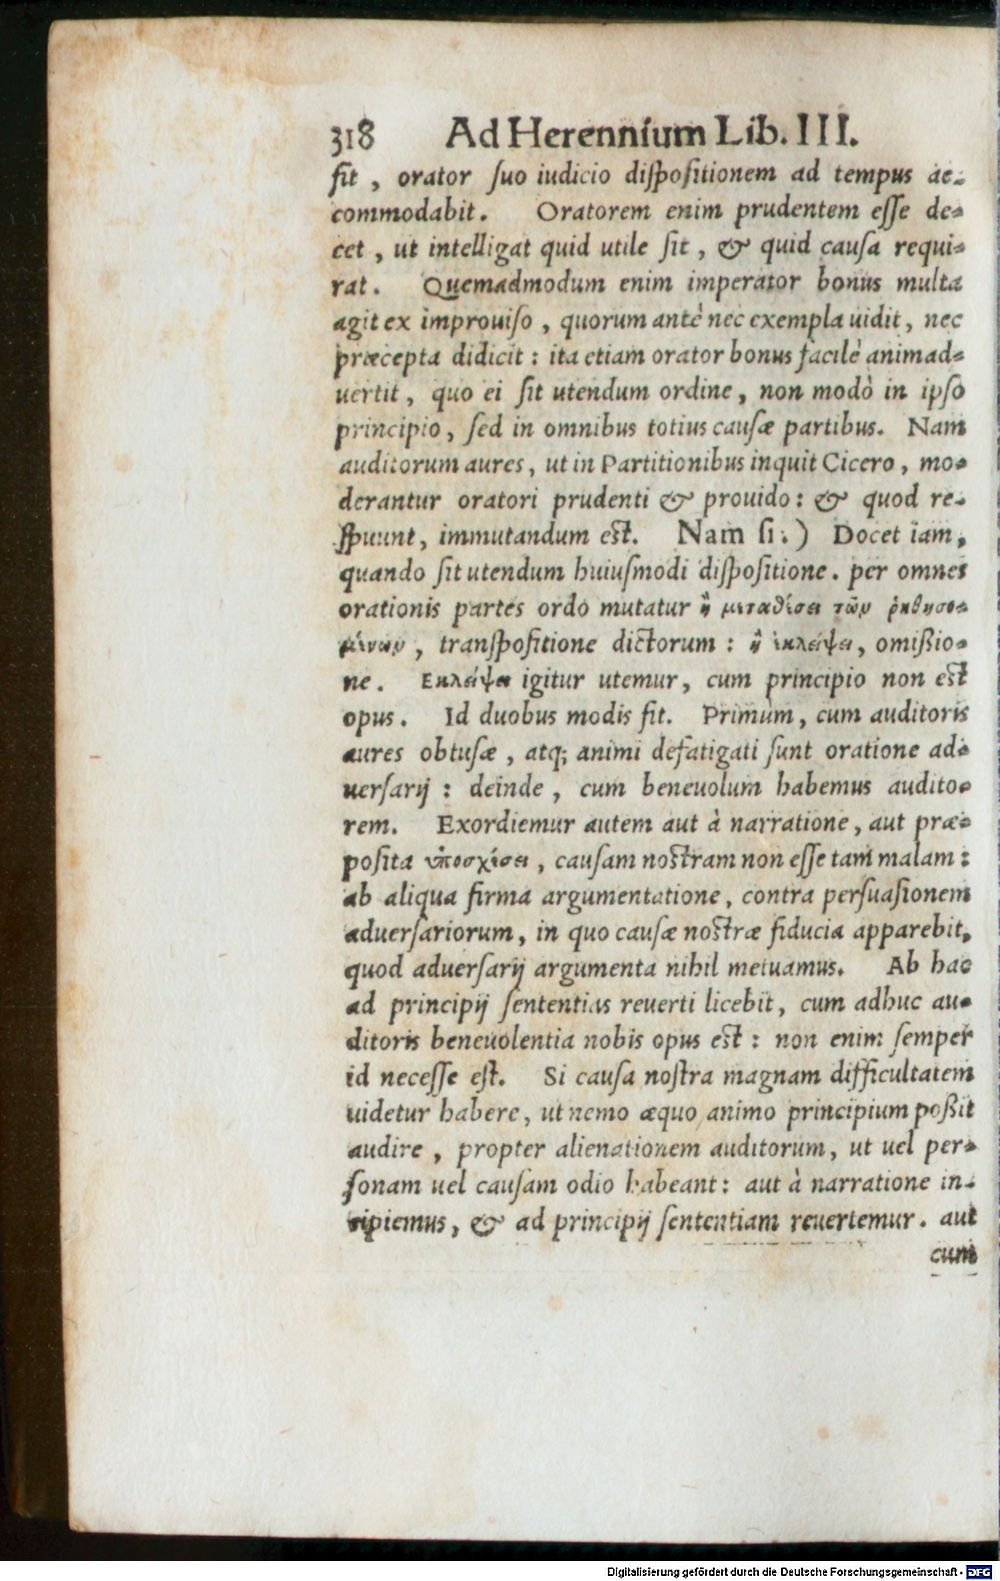 318 Ad Herennium Lib. III.
ſit, orator ſuo iudicio diſpoſitionem ad tempus ac-
commodabit. Oratorem enim prudentem eſſe de-
cet, ut intelligat quid utile ſit, & quid cauſa requi-
rat. Quemadmodum enim imperator bonus multa
agit ex improuiſo, quorum antè nec exempla uidit, nec
præcepta didicit: ita etiam orator bonus facilè animad-
uertit, quo ei ſit utendum ordine, non modò in ipſo
principio, ſed in omnibus totius cauſæ partibus. Nam
auditorum aures, ut in Partitionibus inquit Cicero, mo-
derantur oratori prudenti & prouido: & quod re-
ſpuunt, immutandum eſt. Nam ſi.) Docet iam,
quando ſit utendum huiuſmodi diſpoſitione. per omnes
orationis partes ordo mutatur ἢ μεταθέσει τῶν ῥηθησο-
μένων, tranſpoſitione dictorum: ἢ ἐκλείψει, omißio-
ne. Εκλείψει igitur utemur, cum principio non eſt
opus. Id duobus modis fit. Primùm, cum auditoris
aures obtuſæ, atq; animi defatigati ſunt oratione ad-
uerſarij: deinde, cum beneuolum habemus audito-
rem. Exordiemur autem aut à narratione, aut præ-
poſita ὑποσχέσει, cauſam noſtram non eſſe tam malam:
ab aliqua firma argumentatione, contra perſuaſionem
aduerſariorum, in quo cauſæ noſtræ fiducia apparebit,
quod aduerſarij argumenta nihil metuamus. Ab hac
ad principij ſententias reuerti licebit, cum adhuc au-
ditoris beneuolentia nobis opus eſt: non enim ſemper
id neceſſe eſt. Si cauſa noſtra magnam difficultatem
uidetur habere, ut nemo æquo animo principium poßit
audire, propter alienationem auditorum, ut uel per-
ſonam uel cauſam odio habeant: aut à narratione in-
cipiemus, & ad principij ſententiam reuertemur. aut
cum
Digitalisierung gefördert durch die Deutsche Forschungsgemeinschaft - DFG